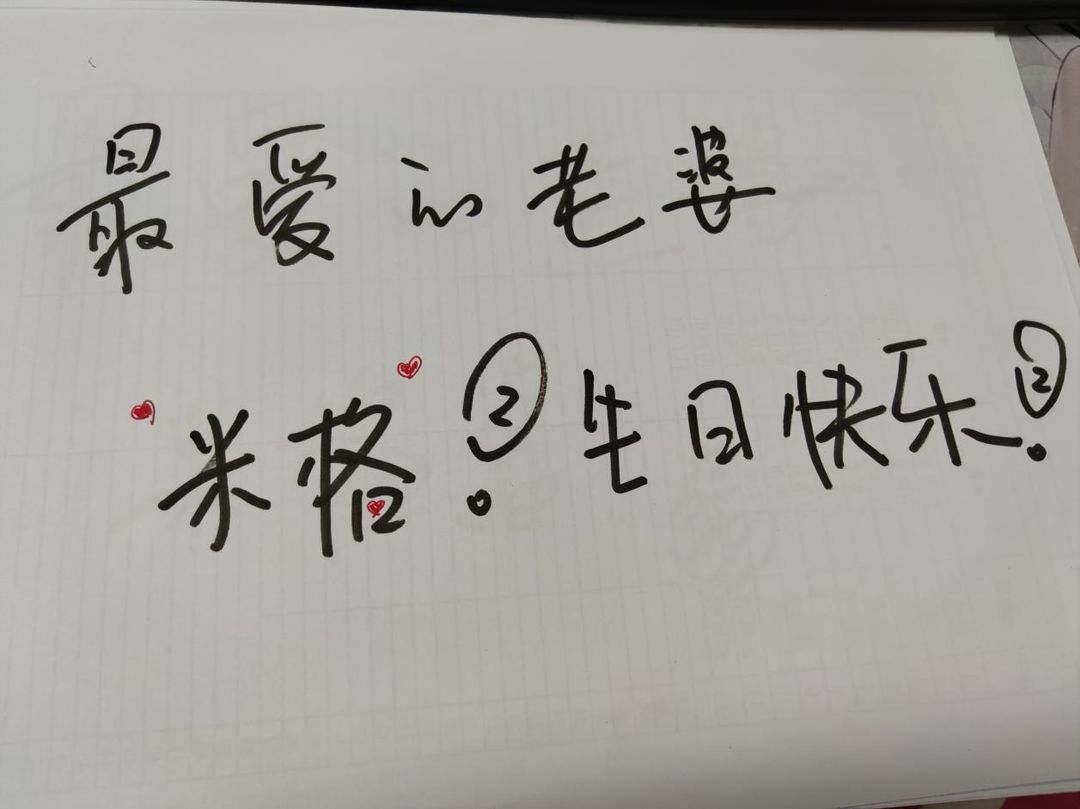 最爱的老婆
米格！生日快乐！